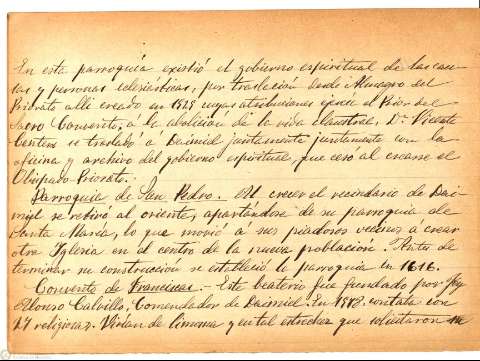 En esta parroquia existió el gobierno espiritual de las cau-
sas y personas eclesiásticas, por traslación desde Almagro del
Priorato allí creado en cuyas atribuciones ejerce el Prior del
Sacro Convento; a la abolición de la vida claustral, Dn Vicente
se trasladó a Daimiel juntamente juntamente con la
oficina y archivo del gobierno espiritual, que cesó al crearse el
Obispado-Priorato.-
Parroquia de San Pedro.- Al crecer el vecindario de Dai-
miel se retiró al oriente, apartándose de su parroquia de
Santa María, lo que movió a sus piadosos vecinos a crear
otra Iglesia en el centro de la nueva población. Antes de
terminar su construcción se estableció la parroquia en 1616.
Convento de Franciscas.- Este beaterio fue fundado por Fey
Alonso Calvillo, Comendador de Daimiel. En contaba con
17 religiosas. Vivían de limosna y en tal estrechez que solicitaron